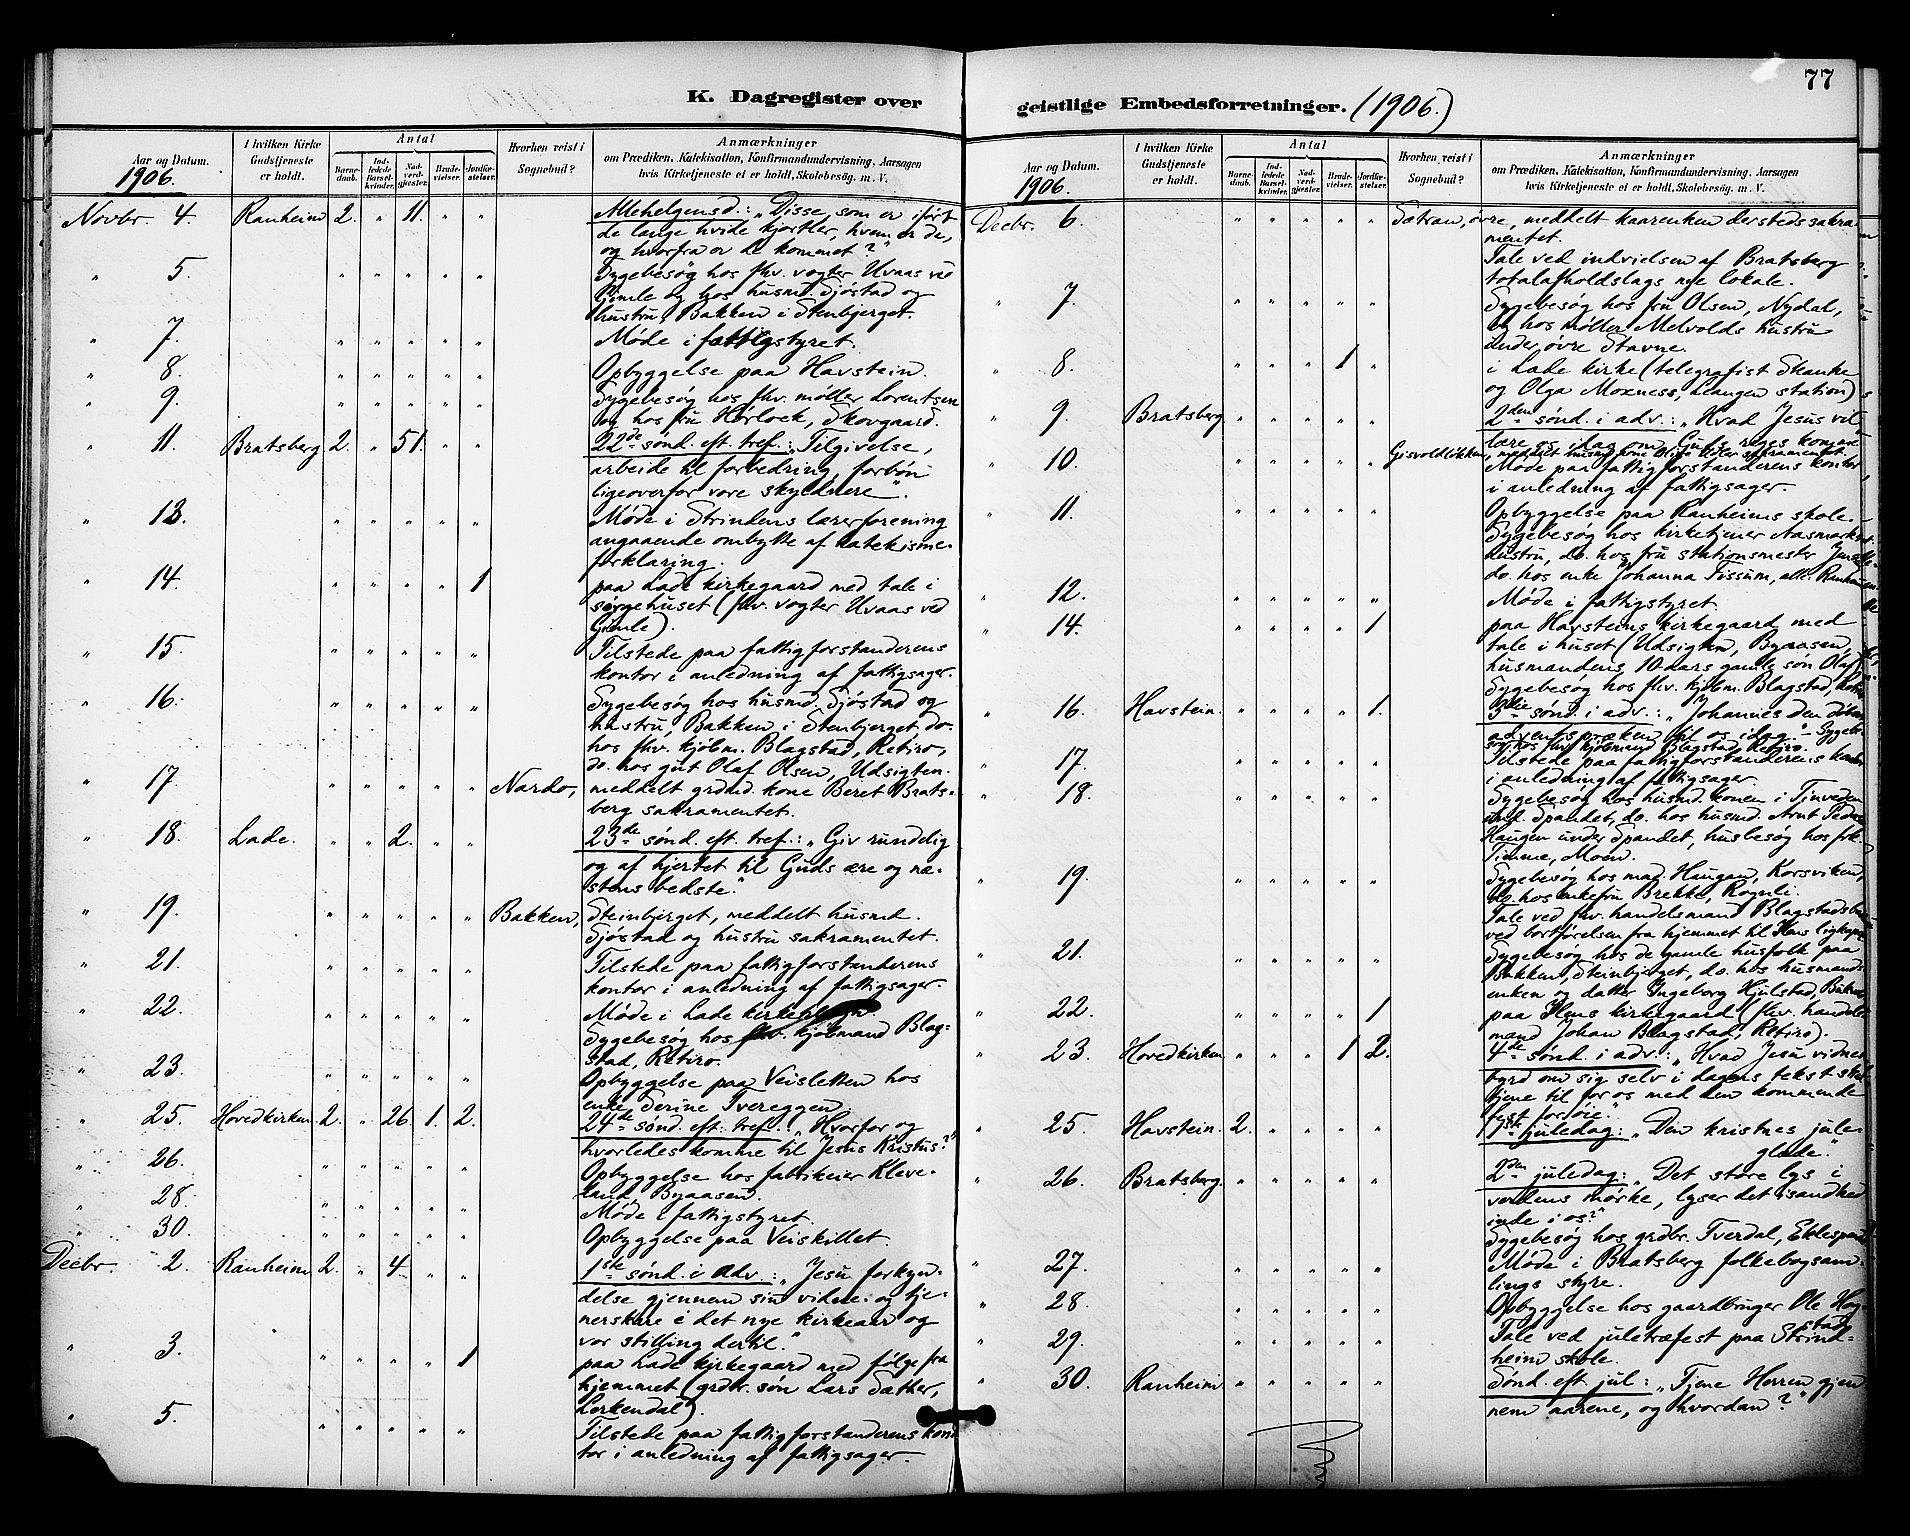 77
K. Dagregister over
geistlige Embedsforretninger. (1906.)
Aar og Datum.
1906.
I hvilken Kirke Gudstjeneste er holdt.
Antal
Barnedaab.
Indledede Barselkvinder.
Nadverdgjester.
Brudevielser.
Jordfæstelser.
Hvorhen reist i Sognebud?
Anmærkninger
om Prædiken, Katekisation, Konfirmandundervisning, Aarsagen
hvis Kirketjeneste ei er holdt, Skolebesøg. m. V.
Novbr. 4. Ranheim 2. " 11. " " Allehelgensd.: „Disse, som er iført
de lange hvide kjortler, hvem er de,
og hvorfra er de kommet?"
" 5. " " " " " Sygebesøg hos fhv. vogter Uvaas ved
Gimle og hos husmd. Sjøstad og
hustru, Bakken i Stenbjerget.
" 7. " " " " " Møde i fattigstyret.
" 8. " " " " " Opbyggelse paa Havstein.
" 9. " " " " " Sygebesøg hos fhv. møller Lorentsen
og hos fru Hørlock, Skovgaard.
" 11. Bratsberg 2. " 51. " " 22de sønd. eft. tref.: „Tilgivelse,
arbeide til forbedring, forbøn
ligeoverfor vore skyldnere".
" 13. " " " " " Møde i Strindens lærerforening
angaaende ombytte af katekisme-
forklaring.
" 14. " " " " 1 paa Lade kirkegaard med tale i
sørgehuset (fhv. vogter Uvaas ved
Gimle).
" 15. " " " " " Tilstede paa fattigforstanderens
kontor i anledning af fattigsager.
" 16. " " " " " Sygebesøg hos husmd. Sjøstad og
hustru, Bakken i Stenbjerget, do.
hos fhv. kjøbm. Blagstad, Retiro,
do. hos gut Olaf Olsen, Udsigten.
" 17. " " " " " Nardo, meddelt grdmd. kone Beret Brats-
berg sakramentet.
" 18. Lade. " " 2. " " 23de sønd. eft. tref.: „Giv rundelig
og af hjertet til Guds ære og næ-
stens bedste."
" 19. " " " " " Bakken, Steinbjerget, meddelt husmd.
Sjøstad og hustru sakramentet.
" 21. " " " " " Tilstede paa fattigforstanderens
kontor i anledning af fattigsager.
" 22. " " " " " Møde i Lade
Sygebesøg hos fhv. kjøbmand Blag-
stad, Retiro.
" 23. " " " " " Opbyggelse paa Veisletten hos
enke Serine Tvereggen.
" 25. Hovedkirken 2. " 26 1. 2. 24de sønd. eft. tref.: „Hvorfor og
hvorledes komme til Jesus Kristus?"
" 26. " " " " " Opbyggelse hos fabrikeier Kleve-
land, Byaasen.
" 28. " " " " " Møde i fattigstyret.
" 30. " " " " " Opbyggelse paa Veiskillet.
Decbr. 2. Ranheim 2. " 4 " " 1ste sønd. i adv.: „Jesu forkyn-
delse gjennem sin vidne- og tje-
nerskare i det nye kirkeaar og
vor stilling dertil."
" 3. " " " " 1 paa Lade kirkegaard med følge fra
hjemmet (grdbr. søn Lars Sæther,
Lerkendal).
" 5. " " " " " Tilstede paa fattigforstanderens kon-
tor i anledning af fattigsager.
Aar og Datum.
1906.
I hvilken Kirke Gudstjeneste er holdt.
Antal
Barnedaab.
Indledede Barselkvinder.
Nadverdgjester.
Brudevielser.
Jordfæstelser.
Hvorhen reist i Sognebud?
Anmærkninger
om Prædiken, Katekisation, Konfirmandundervisning, Aarsagen
hvis Kirketjeneste ei er holdt, Skolebesøg. m. V.
Decbr. 6. " " " " " Sætran, øvre, meddelt kaarenken dersteds sakra-
mentet.
Tale ved indvielsen af Bratsberg
totalafholdslags nye lokale.
" 7. " " " " " Sygebesøg hos fru Olsen, Nydal,
og hos møller Melvolds hustru
under øvre Stavne.
" 8. " " " 1 " i Lade kirke (telegrafist Skanke
og Olga Moxness, Langen station)
" 9. Bratsberg " " " " " 2den sønd. i adv.: „Hvad Jesus vil
lære os idag om Guds riges komme
" 10. " " " " " Gisvoldløkken, meddelt husmd. kone sakramentet.
Møde paa fattigforstanderens kontor
i anledning af fattigsager.
" 11. " " " " " Opbyggelse paa Ranheims skole.
Sygebesøg hos kirketjener Aasmarkens
hustru, do. hos fru stationsmester
do. hos enke Johanna Tissum, alle Ranheim.
" 12. " " " " " Møde i fattigstyret.
" 14. " " " " 1 paa Havsteins kirkegaard med
tale i huset (Udsigten, Byaasen,
husmandens 10 aars gamle søn Olaf)
Sygebesøg hos fhv. kjøbm. Blagstad,
" 16. Havstein. " " " " 1. 3die sønd. i adv.: „Johannes den døbers
adventspræken til os idag". Sygebe-
søg hos fhv. kjøbmand Blagstad, Retiro.
" 17. " " " " " Tilstede paa fattigforstanderens kontor
i anledning af fattigsager
" 18. " " " " " Sygebesøg hos husmd. konen i Tinveden
und. Spandet, do. hos husmd. Arnt Peder
Haugen under Spandet, husbesøg hos frk.
Timme, Moen.
" 19. " " " " " Sygebesøg hos mad. Haugan, Korsviken,
do. hos enkefru Brekke, Rognli.
Tale ved fhv. handelsmand Blagstads
ved bortførelsen fra hjemmet til Ilens ligkapel
" 21. " " " " " Sygebesøg hos de gamle husfolk paa
Bakken, Steinbjerget, do. hos husmands-
enken og datter Ingeborg Hjulstad,
" 22. " " " " 1 paa Ilens kirkegaard (fhv. handels-
mand Johan Blagstad, Retiro).
" 23. Hovedkirken " " " 1 2. 4de sønd. i adv.: „Hvad Jesu vidnes-
byrd om sig selv i dagens tekst skal
tjene til for os med den kommende
fest forøie."
" 25. Havstein. 2. " " " " 1ste juledag: „Den kristnes jule-
glæde."
" 26. Bratsberg. " " " " " 2den juledag: „Det store lys i
verdens mørke, lyser det isandhed
inde i os?"
Sygebesøg hos grdbr. Tverdal,
" 27. " " " " " Møde i Bratsberg folkebogsam-
lings styre.
" 28. " " " " " Opbyggelse hos gaardbruger Ole Hog-
stad
" 29. " " " " " Tale ved juletræfest paa Strind-
heim skole.
" 30. Ranheim " " " " " Sønd. eft. jul: „Tjene Herren gjen
nem aarene, og hvordan?"